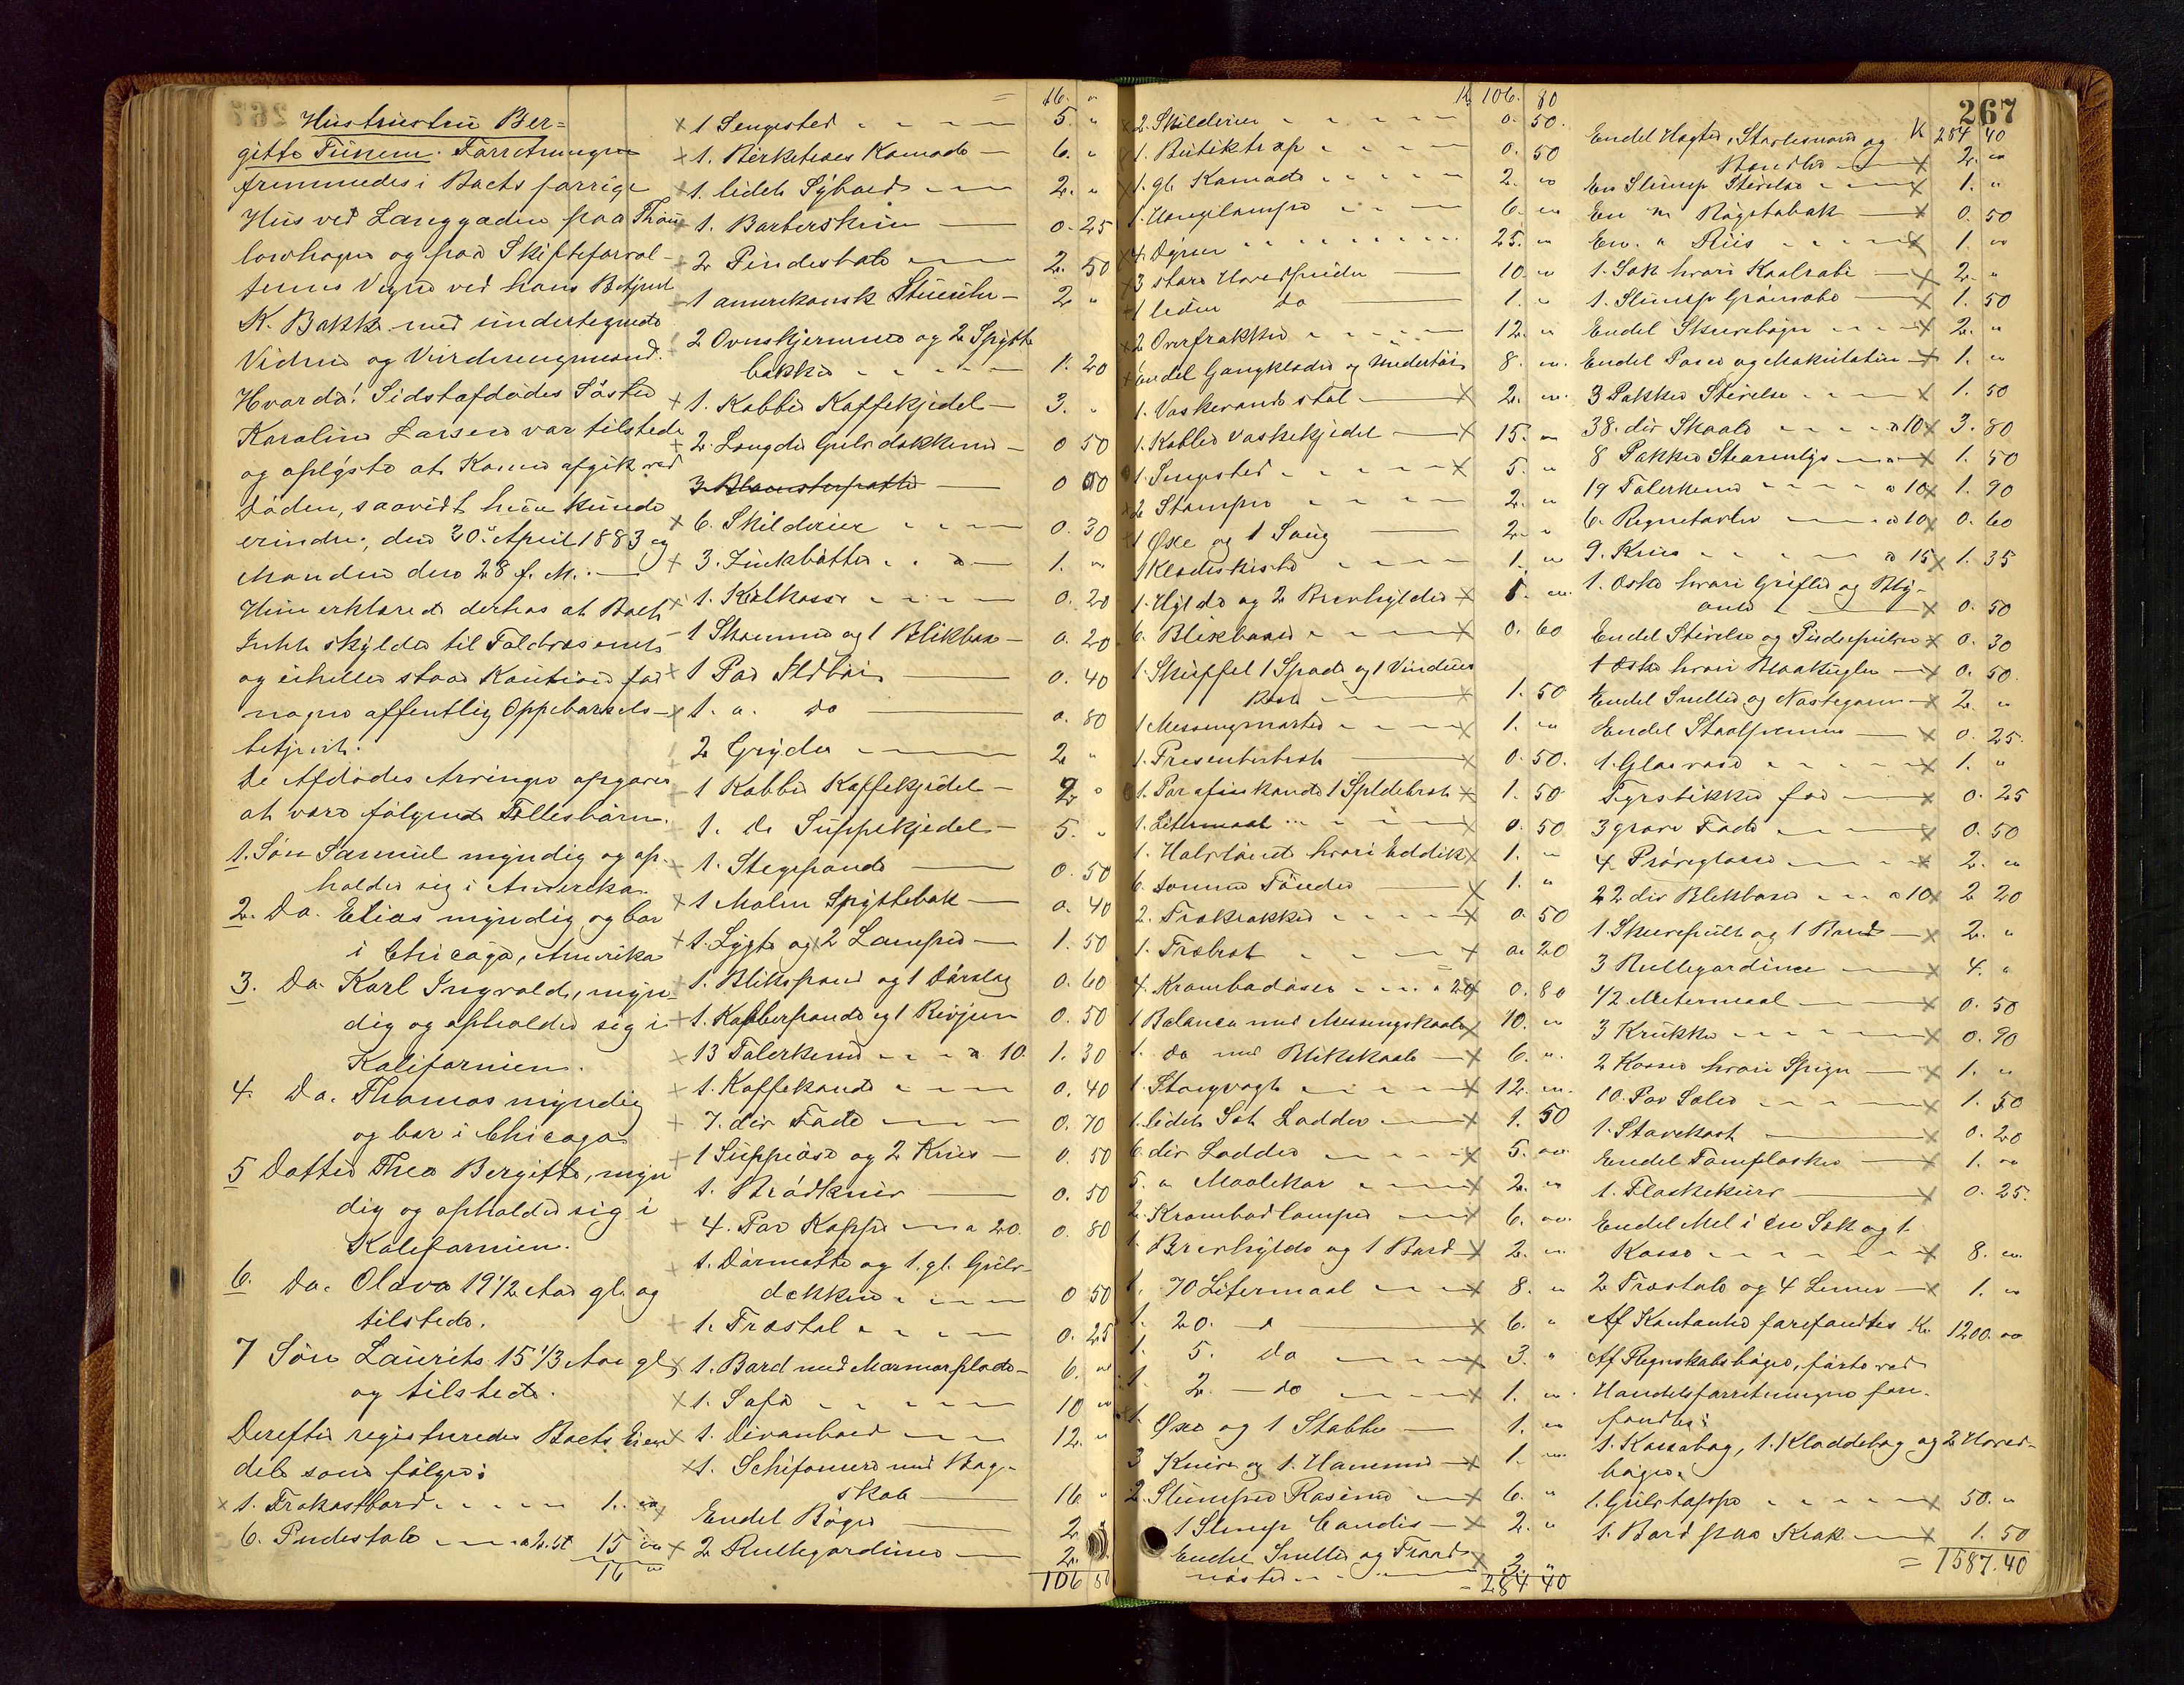 Hustrustru Ber=
gitte Tünem. Forretningen
fremmedes i Boets forrige
Hus ved Langgaden paa
og paa Skifteforval-
terens Vegne ved hans Betjent
K. Bakke med undertegnede
Vidne og Vurderingsmænd.
Hvorda! Sidstafdødes Søster
Karoline Larsen var tilstede
og oplyste at Konen afgik ved
Døden, saavidt hun kunde
erindre, den 20de April 1883 og
Manden den 28 f. M. —
Hun erklærede derhos at Boet
Intet skylder til Toldvæsenet
og eiheller staar Kaution for
nogen offentlig Oppebørsels-
betjent.
De Afdødes Arvinger opgaves
at være følgende Fællesbørn.
1. Søn Samuel myndig og op-
holder sig i Amerika.
2. Do. Elias myndig og bor
i Chicago, Amerika
3. Do. Karl Ingvald, myn-
dig og opholder sig i
Kalifornien.
4. Do. Thomas myndig
og bor i Chicago
5 Datter Thea Bergitte, myn
dig og opholder sig i
Kalifornien.
6. Do. Olava 19 1/2 Aar gl. og
tilstede.
7 Søn Laurits 15 1/3 Aar gl.
og tilstede.
Derefter registreredes Boets Eien
dele som følger:
1. Frokostbord 1. "
6. Pindestole a 2.50 15 "
16 "
= 16. "
1 Sengested 5. "
1. Birketræes Komode — 6. "
1. lidet Sybord 2. "
1. Barberskrin — 0. 25
2 Pindestole 2. 50
1 amerikansk Stueuhr — 2 "
2 Ovnskjermer og 2 Spytte
bakker 1. 20
1. Kobber Kaffekjedel — 3. "
2. Længder Gulvdækken — 0 50
3 Blomsterpotter — 0 50
6. Skilderier 0. 30
3. Zinkbøtter 1. "
1. Kulkasse 0. 20
1 Skammel og 1 Blikboxe — 0. 20
1 Par Ildtøi — 0. 40
1. " do — 0. 80
2 Gryder — 2 "
1 Kobber Kaffekjedel — 2 "
1. Do Suppekjedel — 5. "
1. Stegepande — 0. 50
1 Malm Spyttebak — 0. 40
1. Lygte og 2 Lamper — 1. 50
1. Blikspand og 1 Dørslag 0. 60
1. Kobberpande og 1 Rivjern 0. 50
13 Talerkener a 10. 1. 30
1. Kaffekande 0. 40
7. div Fade 0. 70
1 Suppeøse og 2 Knive — 0. 50
1. Brødkniv — 0. 50
4. Par Kopper a 20. 0. 80
1. Dørmatte og 1. gl. Gulv-
dækken 0 50
1. Træstol 0. 25
1. Bord med Marmorplade — 6. "
1. Sofa 10 "
1. Divanbord 12. "
1. Schifonere med Bog-
skab — 16 "
Endel Bøger — 2. "
2 Rullegardiner — 2. "
106 80
K 106. 80
2. Skilderier 0. 50.
1. Butiktrap 0. 50
1. gl. Komode 2. "
1. Hængelampe 6. "
4 Dyner 25. "
3 store Hovedpuder — 10. "
1 liden do — 1. "
2 Overfrakker 12. "
Endel Gangklæder og Undertøi 8. "
1. Vaskevandsstol — 2. "
1. Kobber Vaskekjedel — 15. "
1. Sengested 5. "
2 Stamper 2. "
1 Øxe og 1 Saug — 2. "
1 Klædeskiste 1. "
1. Hylde og 2 Brevhylder 1. "
6. Blikboxer 0. 60
1. Skuffel 1 Spade og 1 Vindues
Kost 1. 50
1 Messingmorter 1. "
1. Presenterbret — 0. 50.
1. Parafinkande 1 Spildebret 1. 50
1. Litermaal 0. 50
1. Halvtønde hvori Eddik 1. "
6. tomme Tønder — 1. "
2. Frakrakker 0. 50
1. Træbrot 0. 20
4. Krambodøser a 20 0. 80
1 Balance med Messingskaale 10. "
1. do med Blikskaale — 6. "
1. Stangvægt 12. "
1. lidet Sæt Lodder — 1. 50
6. div Lodder 5. "
5. " Maalekar 2. "
2. Krambodlamper 6. "
1. Brevhylde og 1 Bord 2. "
1. 70 Litermaal 8. "
1. 20. d — 6. "
1. 5. do 3. "
1. 2. — do 1. "
1. Øxe og 1 Stabbe — 1. "
3 Knive og 1. Hammer — 1. "
2. Slumper Rosiner 6. "
1 Slump Candis — 2. "
Endel Sneller og Traad
nøster 3. "
= 284 40
267
Endel Hægter, Skosnører og K 284 40
Bændler 2. "
En Slump Stivelse 1. "
En " Røgtobak — 0. 50
En. " Riis 1. "
1. Sæk hvori Kaalrabi — 2. "
1. Slump Grønsæbe — 1. 50
Endel Skrivebøger 2. "
Endel Poser og Makulatur 1. "
3 Pakker Stivelse 1. 50
38. div Skaale a 10 3. 80
8 Pakker Stearinlys 1. 50
19 Talerkener a 10 1. 90
6. Regnetavler a 10 0. 60
9. Krus a 15 1. 35
1. Æske hvori Grifler og Bly-
anter 0. 50
Endel Stivelse og Pudsepulver 0. 30
1 Æske hvori Blaakugler — 0. 50.
Endel Sneller og Nøstegarn — 2. "
Endel Staalpenne — 0. 25.
1. Glasvase 1. "
Fyrstikker for — 0. 25
3 grove Fade 0. 50
4 Prøveglasse 2. "
22 div Blikboxer a 10 2 20
1. Skrivepult og 1 Bord — 2. "
3 Rullegardiner 4. "
1/2 Metermaal 0. 50
3 Krukker 0. 90
2 Kasser hvori Spiger — 1. "
10. Par Saaler 1. 50
1. Støvekost — 0. 20
Endel Tomflasker 1. "
1. Flaskekurv — 0. 25.
Endel Mel i en Sæk og 1
Kasse 8. "
2 Træstole og 4 Lemer — 1. "
Af Kontanter forefandtes Kr 1200. "
Af Regnskabsbøger, førte ved
Handelsforretningen fore-
fandtes:
1. Kassabog, 1. Kladdebog og 2 Hoved-
bøger.
1. Gulvtæppe 50. "
1. Bord paa Krak — 1. 50
= 1587. 40